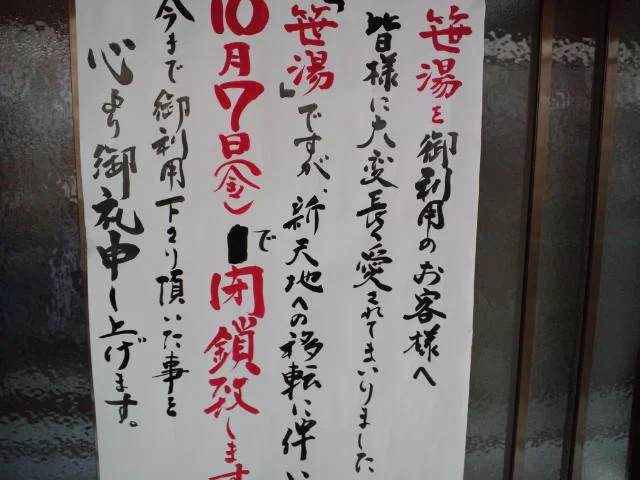 笹湯を御利用のお客様へ
皆様に大変長く愛されてまいりました
「笹湯」ですが、新天地への移転に伴い
10月7日(金)で閉鎖致します
今まで御利用下さり頂いた事を
心より御礼申し上げます。